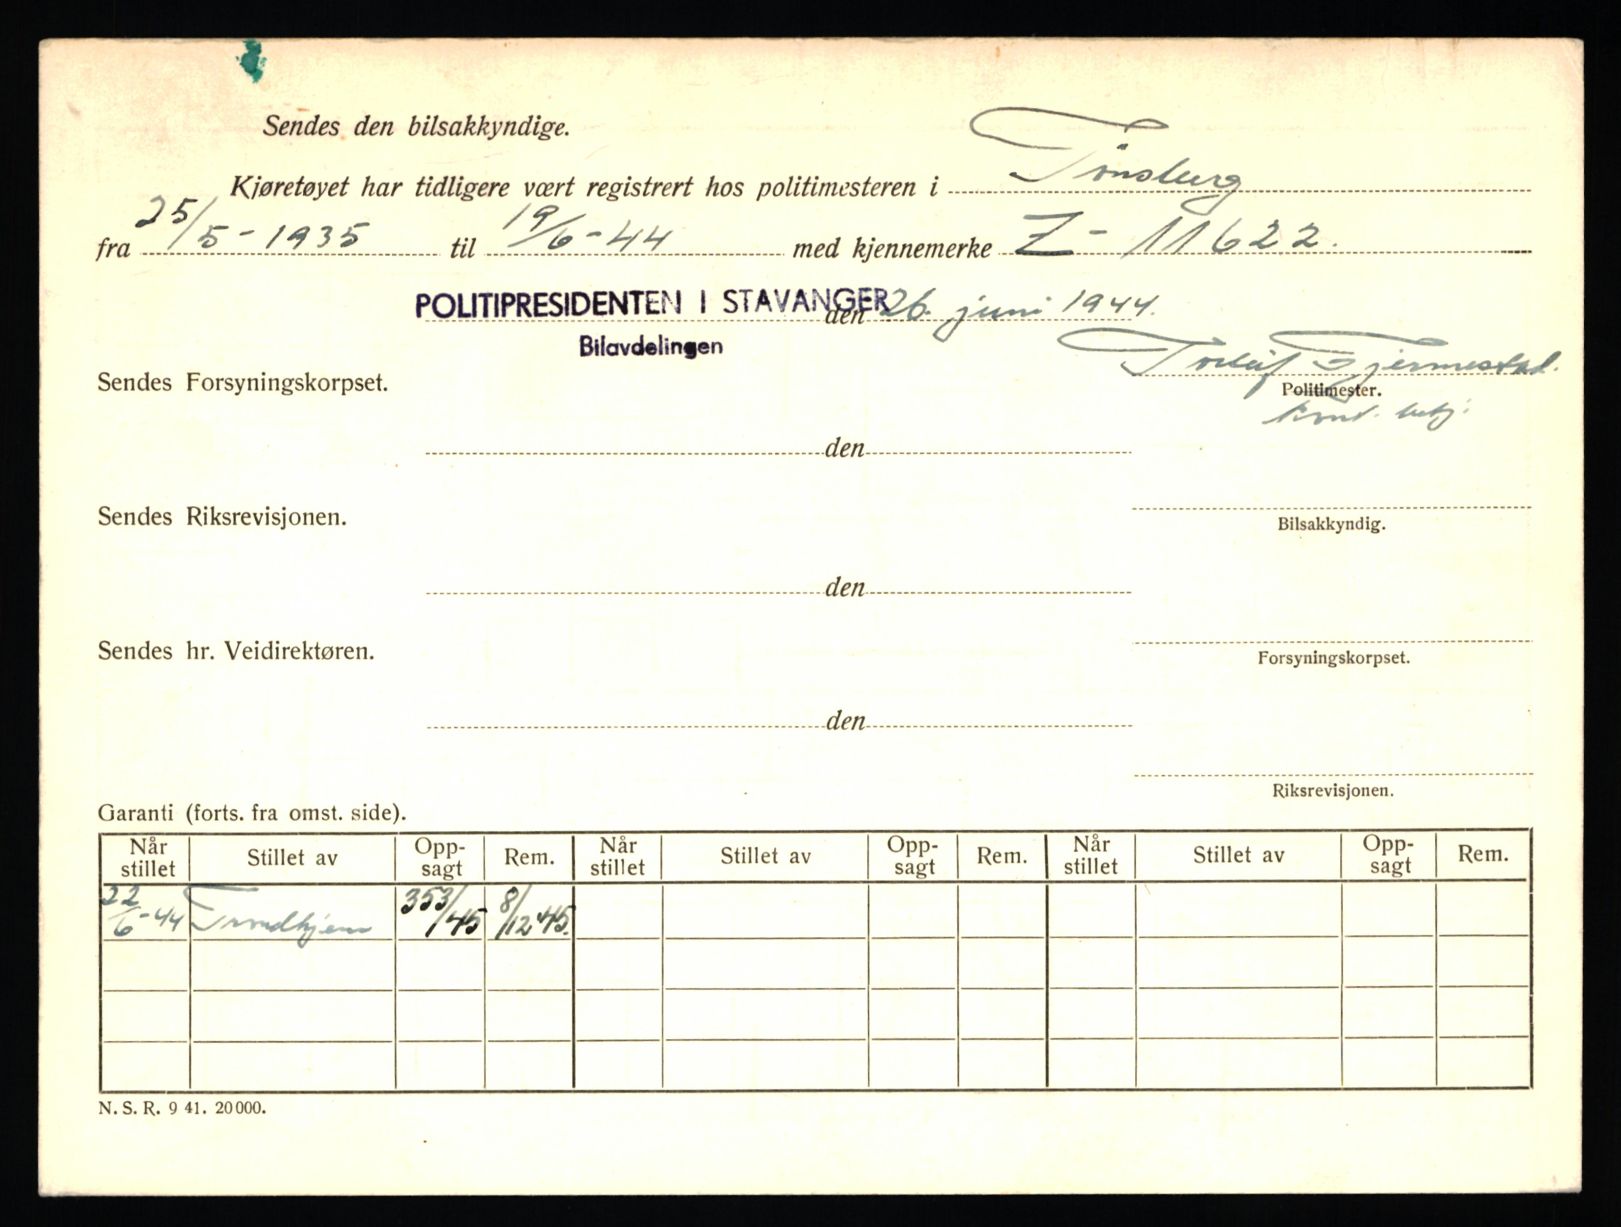 Sendes den bilsakkyndige.
Kjøretøyet har tidligere vært registrert hos politimesteren i Tönsberg
fra 25/5 - 1935 til 19/6 - 44 med kjennemerke Z - 11622.
POLITIPRESIDENTEN I STAVANGER den 26. juni 1944.
Bilavdelingen
Torleif Tjermestad.
Sendes Forsyningskorpset.
Politimester.
den
Sendes Riksrevisjonen.
Bilsakkyndig.
den
Sendes hr. Veidirektøren.
Forsyningskorpset.
den
Riksrevisjonen.
Garanti (forts. fra omst. side).
Når stillet Stillet av Opp-sagt Rem. Når stillet Stillet av Opp-sagt Rem. Når stillet Stillet av Opp-sagt Rem.
22/6-44 Trondhjem 353/45 8/12 45.
N. S. R. 9 41. 20 000.